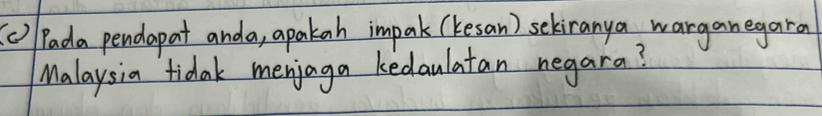 (c) Pada pendapat anda, apakah impak (kesan) sekiranya warganegara
Malaysia tidak menjaga kedaulatan negara?